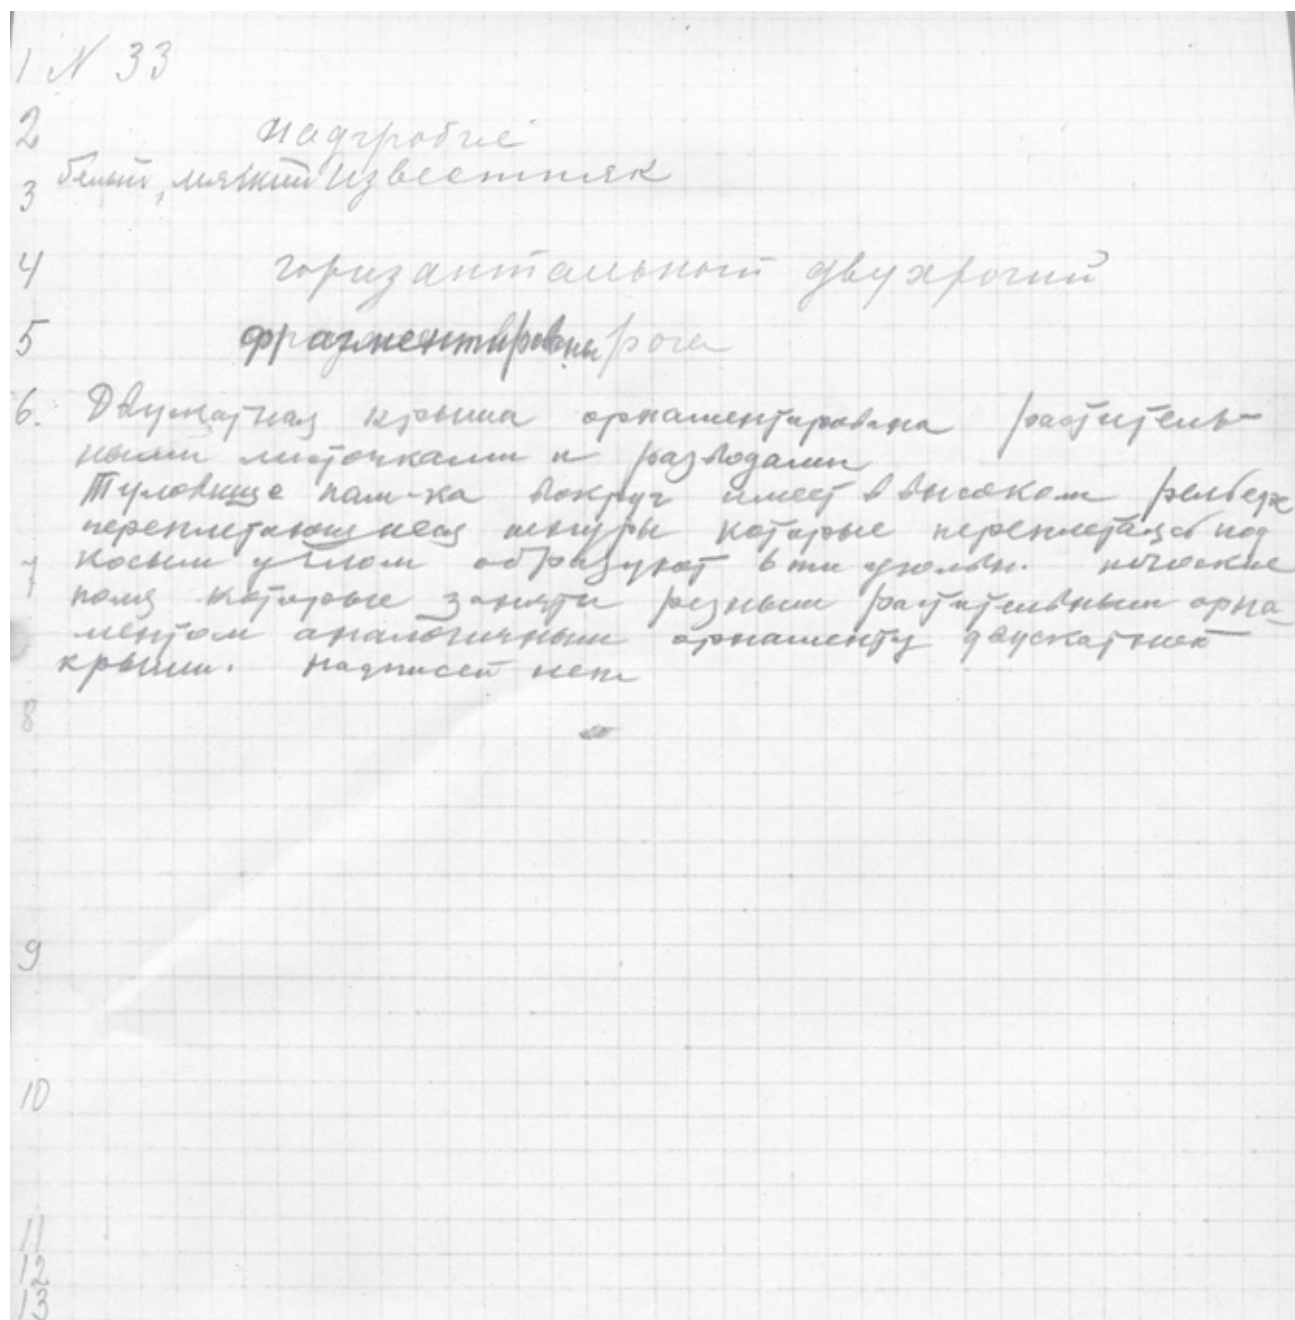 1 N 33
2 надгробие
3 белый, мягкий известняк
4 горизантальный двухрогий
5 фрагментированы рога
6. Двускатная крыша орнаментирована раститель-
ными листочками и разводами
Туловище пам-ка вокруг имеет в высоком рельефе
переплетающиеся шнуры которые переплетаясь под
7 косым углом образуют угольн. плоские
поля которые заняты резным растительным орна-
ментом аналогичным орнаменту двускатной
крыши. Надписей нет
8
9
10
11
12
13